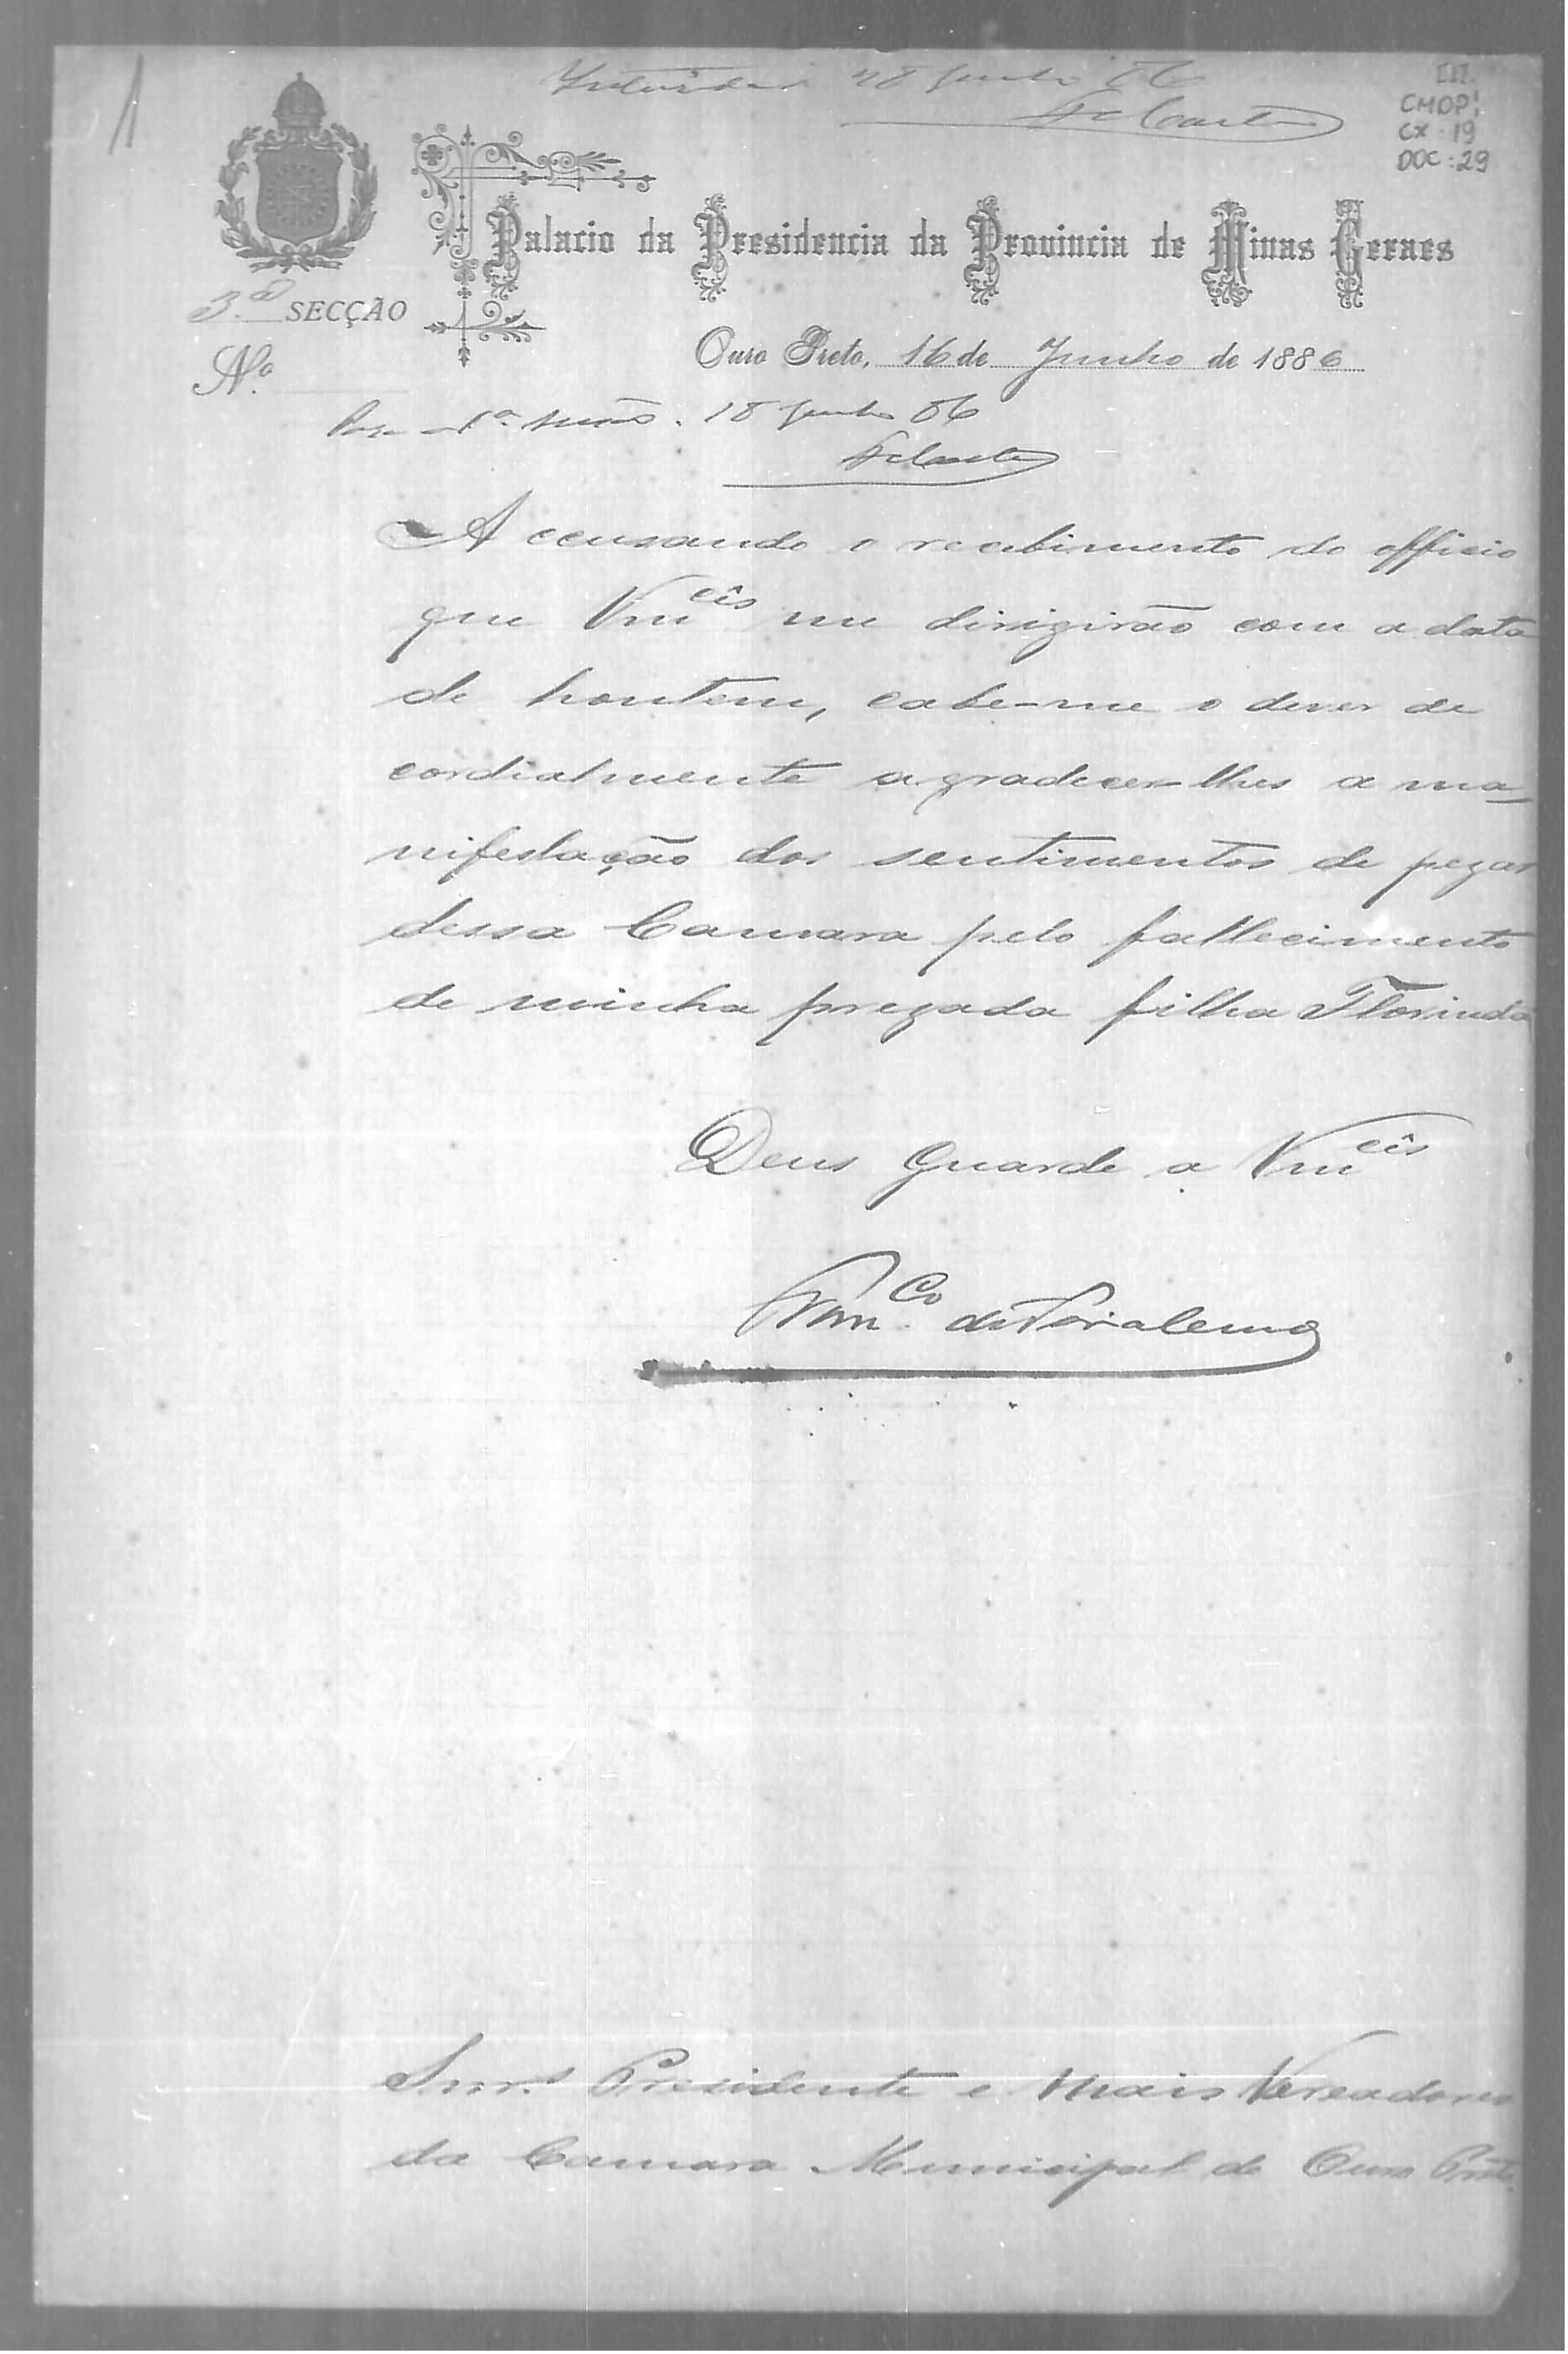 1
Inteirada 28 Junho 86
CMOP
CX: 19
DOC: 29
Palacio da Presidencia da Provincia de Minas Geraes
3.ª SECÇÃO
Ouro Preto, 16 de Junho de 1886
N.º
Para 1.ª 18 Junho 86
Accusando o recebimento do officio
que Vm.cês me dirigirão com a data
de hontem, cabe-me o dever de
cordialmente agradecer-lhes a ma-
nifestação dos sentimentos de pezar
dessa Camara pelo fallecimento
de minha prezada filha Florinda
Deus Guarde a Vm.cês
Snr.s Presidente e mais Vereadores
da Camara Municipal de Ouro Preto.